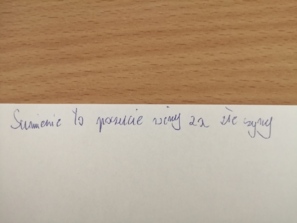 Sumienie to poczucie winy za złe czyny